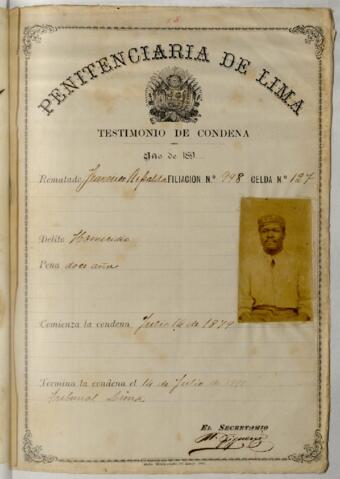 PENITENCIARIA DE LIMA
TESTIMONIO DE CONDENA
Año de 189
Rematado Francisco FILIACIÓN N.º 948 CELDA N.º 127
Delito Homicidio
Pena doce años
Comienza la condena Julio 14 de 1879
Termina la condena el 14 de Julio de
Tribunal Lima
EL SECRETARIO